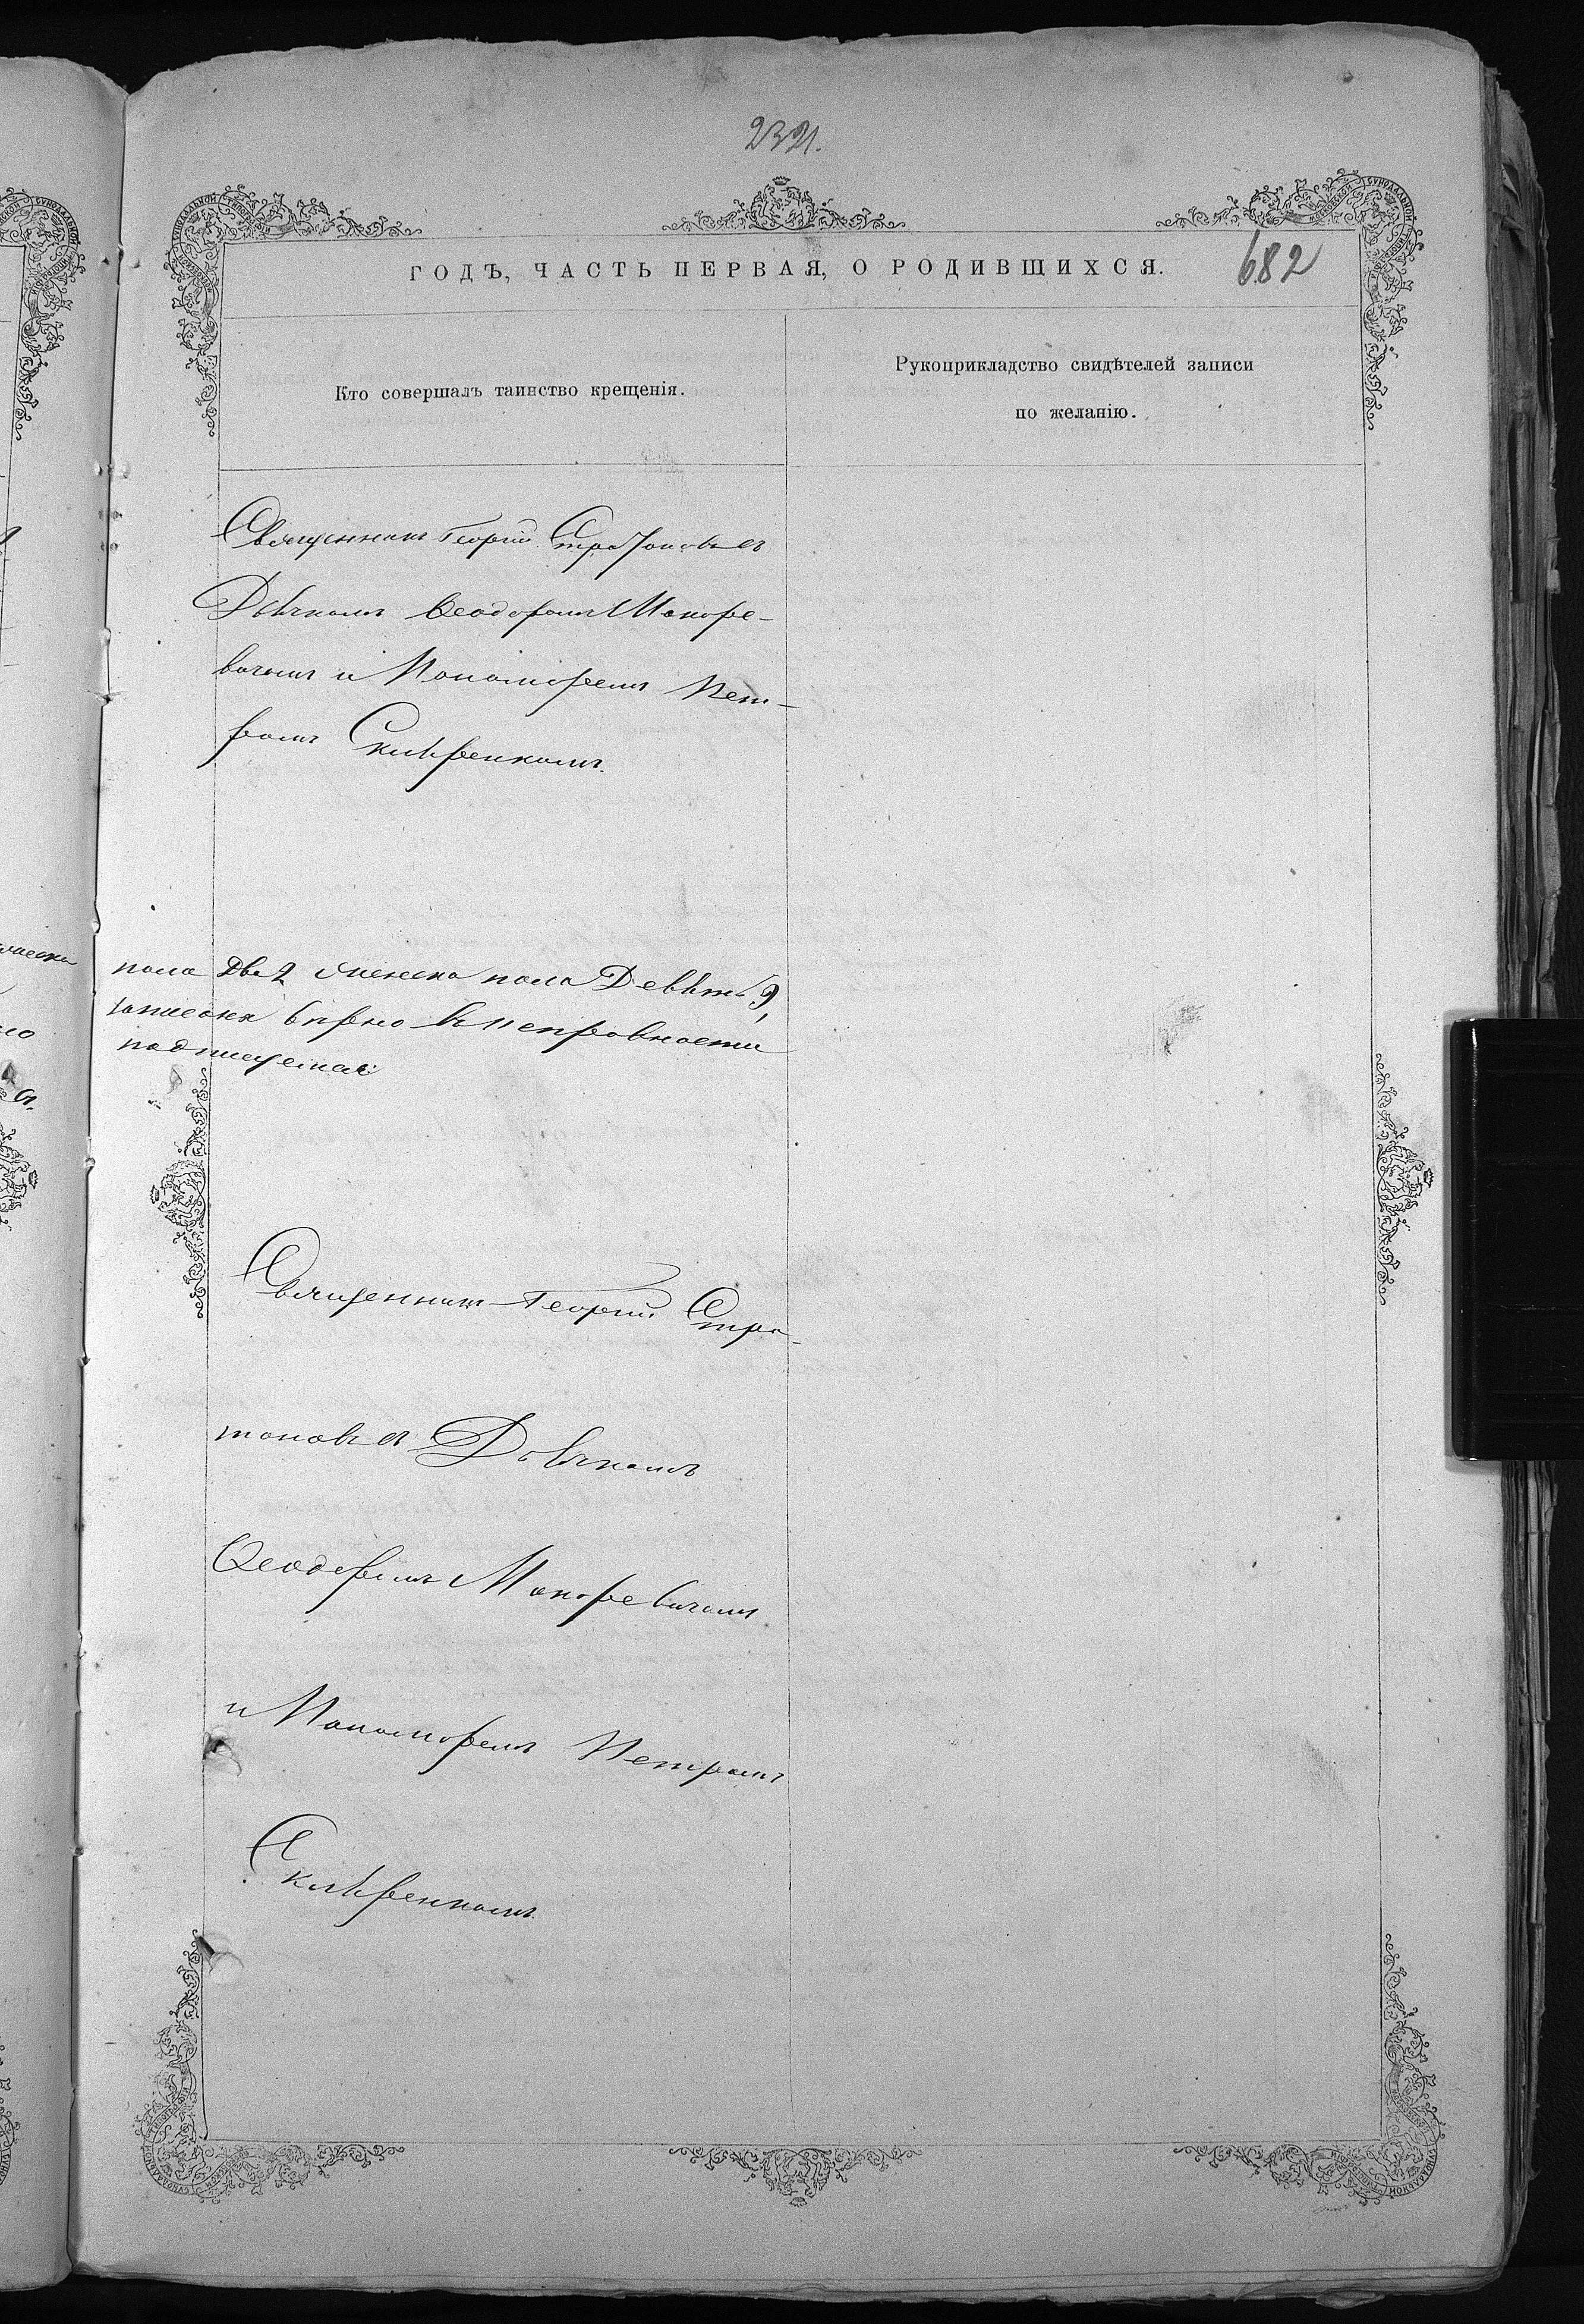 2321.
682
ГОДЪ, ЧАСТЬ ПЕРВАЯ, О РОДИВШИХСЯ.
Кто совершалъ таинство крещенія.
Рукоприкладство свидѣтелей записи
по желанію.
Священникъ Георгій Стратоновъ съ
Дьячкомъ Ѳеодоромъ Макаре-
вичемъ и Пономаремъ Пет-
ромъ
пола Два 2 женска пола Девять 9,
записана вѣрно
подписуемся
Священникъ Георгій Стра-
тоновъ съ Дьячкомъ
Ѳеодоромъ Макаревичемъ
и Пономаремъ Петромъ